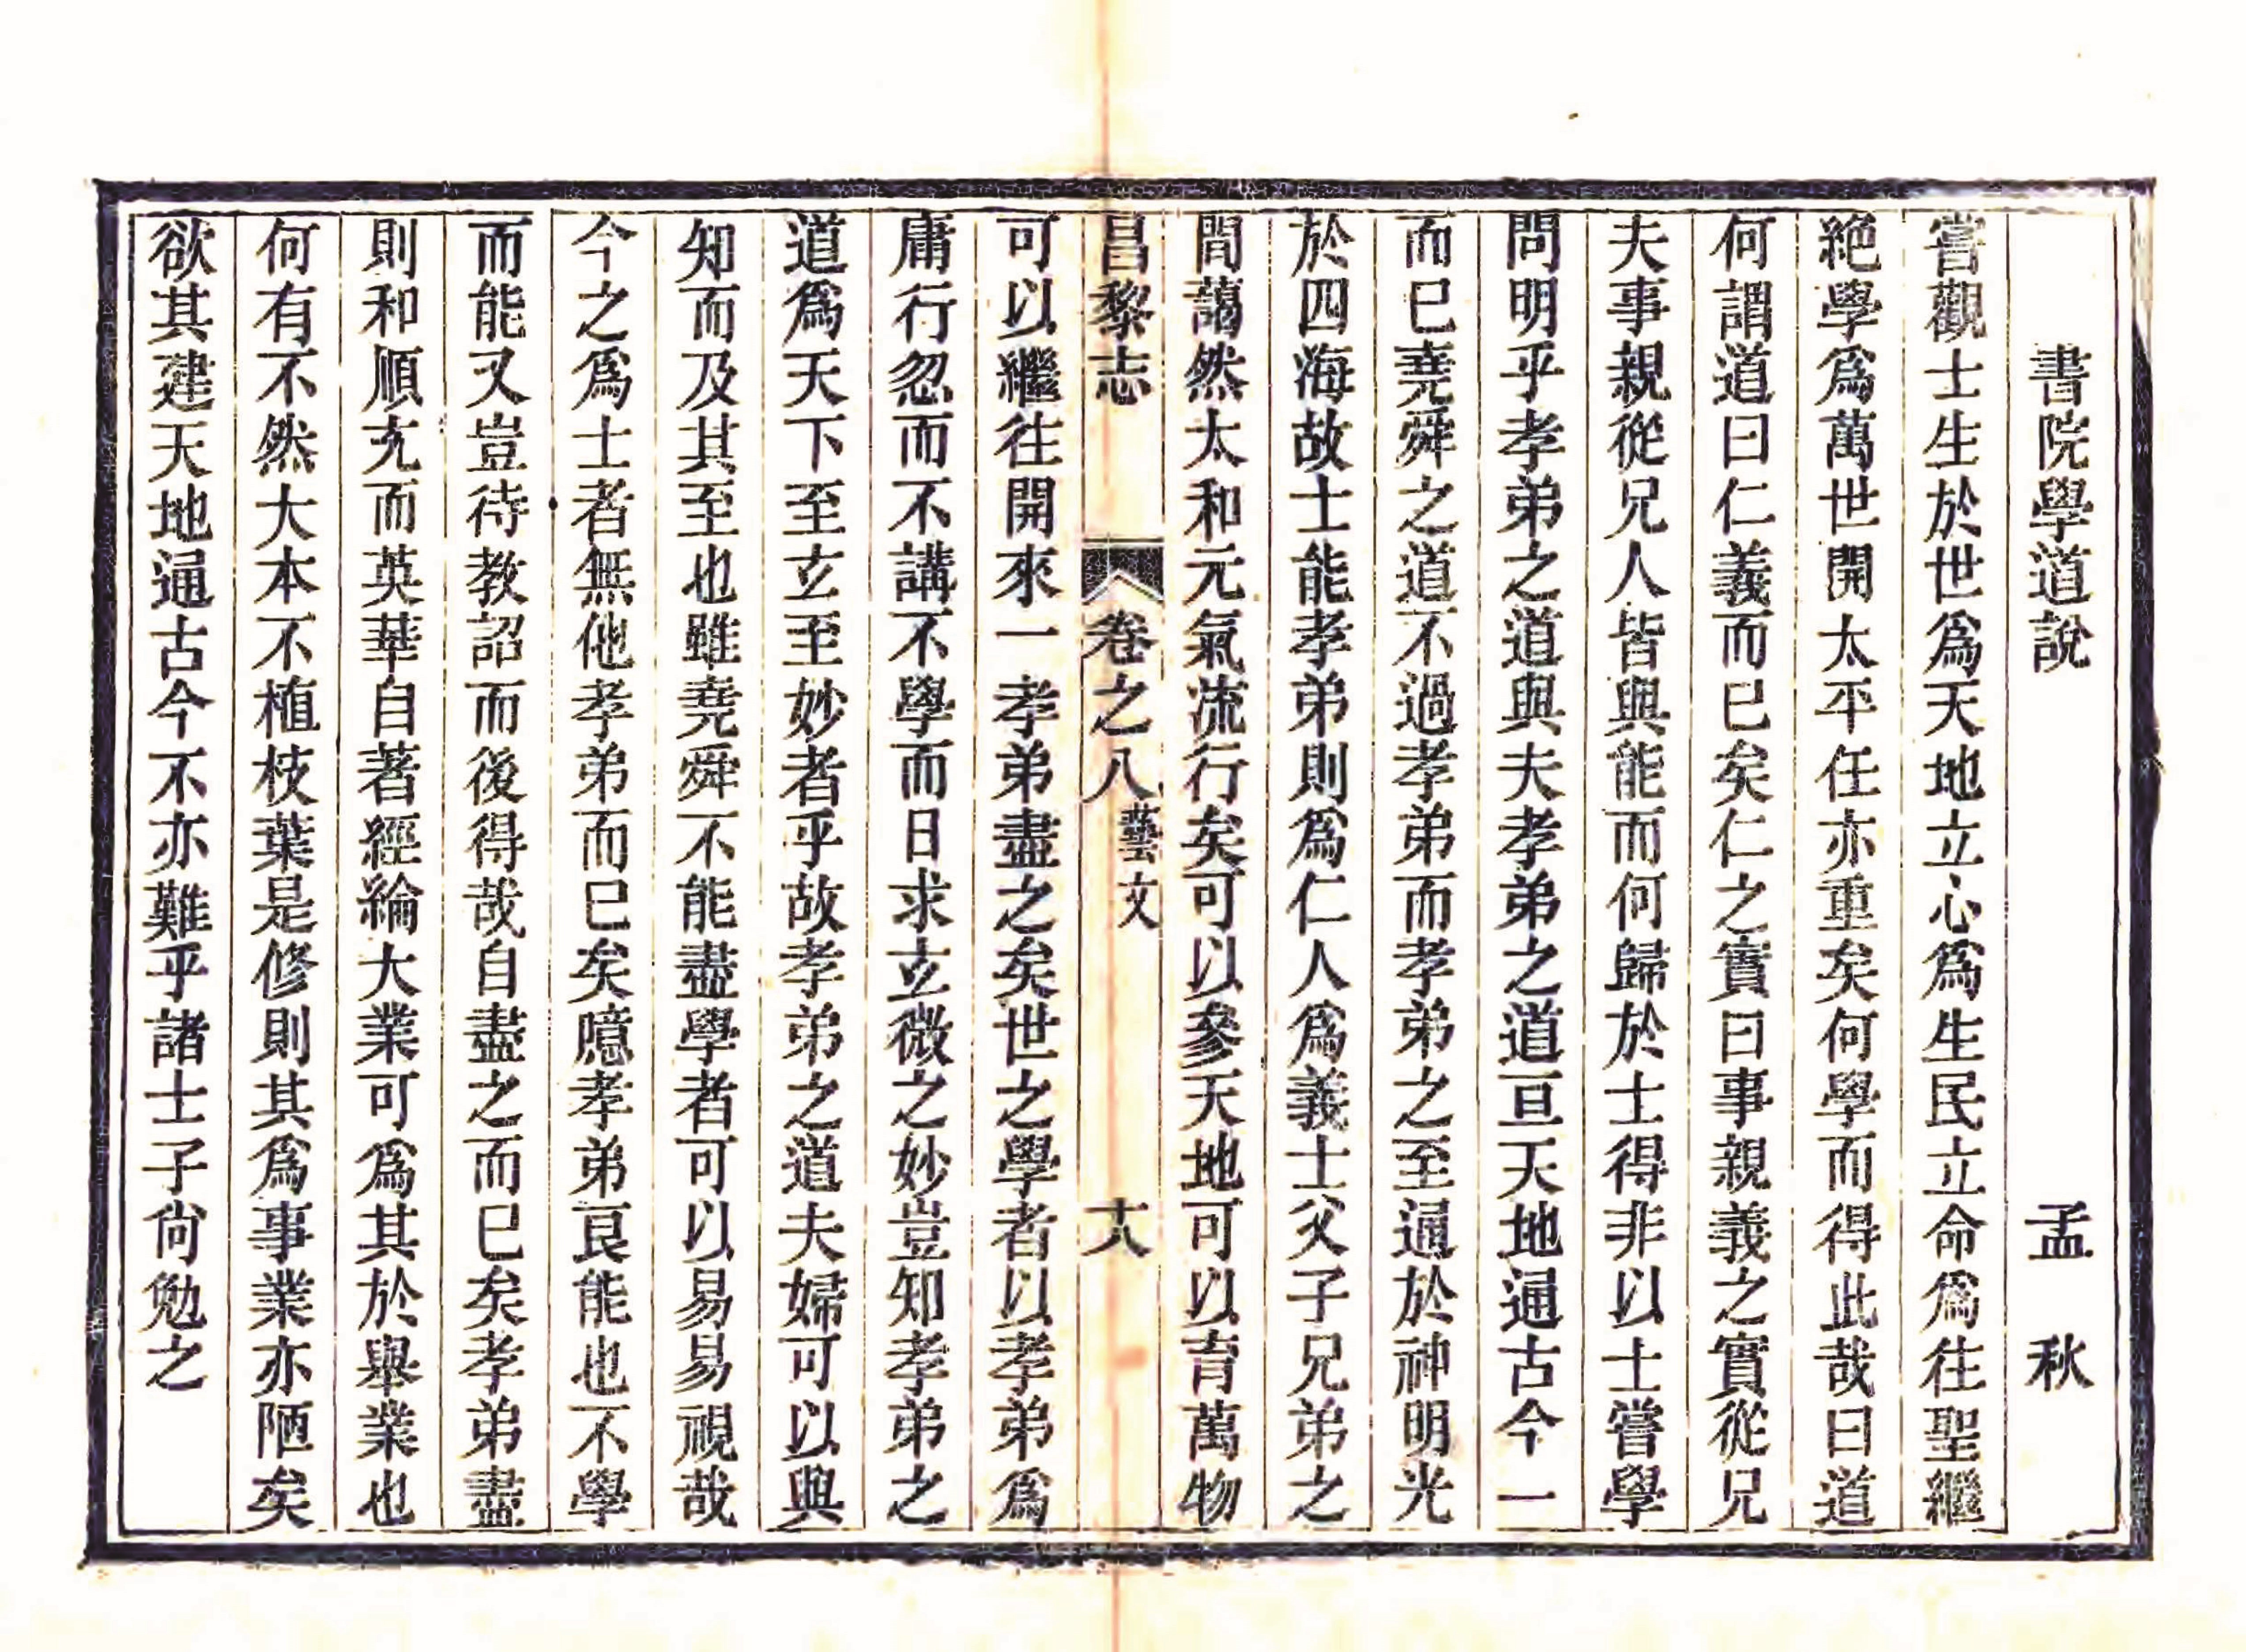 書院學道說　孟秋
嘗觀士生於世爲天地立心爲生民立命爲往聖繼
絕學爲萬世開太平任亦重矣何學而得此哉曰道
何謂道曰仁義而已矣仁之實曰事親義之實從兄
夫事親從兄人皆與能而何歸於士得非以士嘗學
問明乎孝弟之道與夫孝弟之道亘天地通古今一
而已堯舜之道不過孝弟而孝弟之至通於神明光
於四海故士能孝弟則爲仁人爲義士父子兄弟之
間藹然太和元氣流行矣可以參天地可以育萬物
昌黎志　卷之八　藝文　十八
可以繼往開來一孝弟盡之矣世之學者以孝弟爲
庸行忽而不講不學而日求玄微之妙豈知孝弟之
道爲天下至玄至妙者乎故孝弟之道夫婦可以與
知而及其至也雖堯舜不能盡學者可以易易視哉
今之爲士者無他孝弟而已矣噫孝弟良能也不學
而能又豈待教詔而後得哉自盡之而已矣孝弟盡
則和順充而英華自著經綸大業可爲其於舉業也
何有不然大本不植枝葉是修則其爲事業亦陋矣
欲其建天地通古今不亦難乎諸士子尚勉之